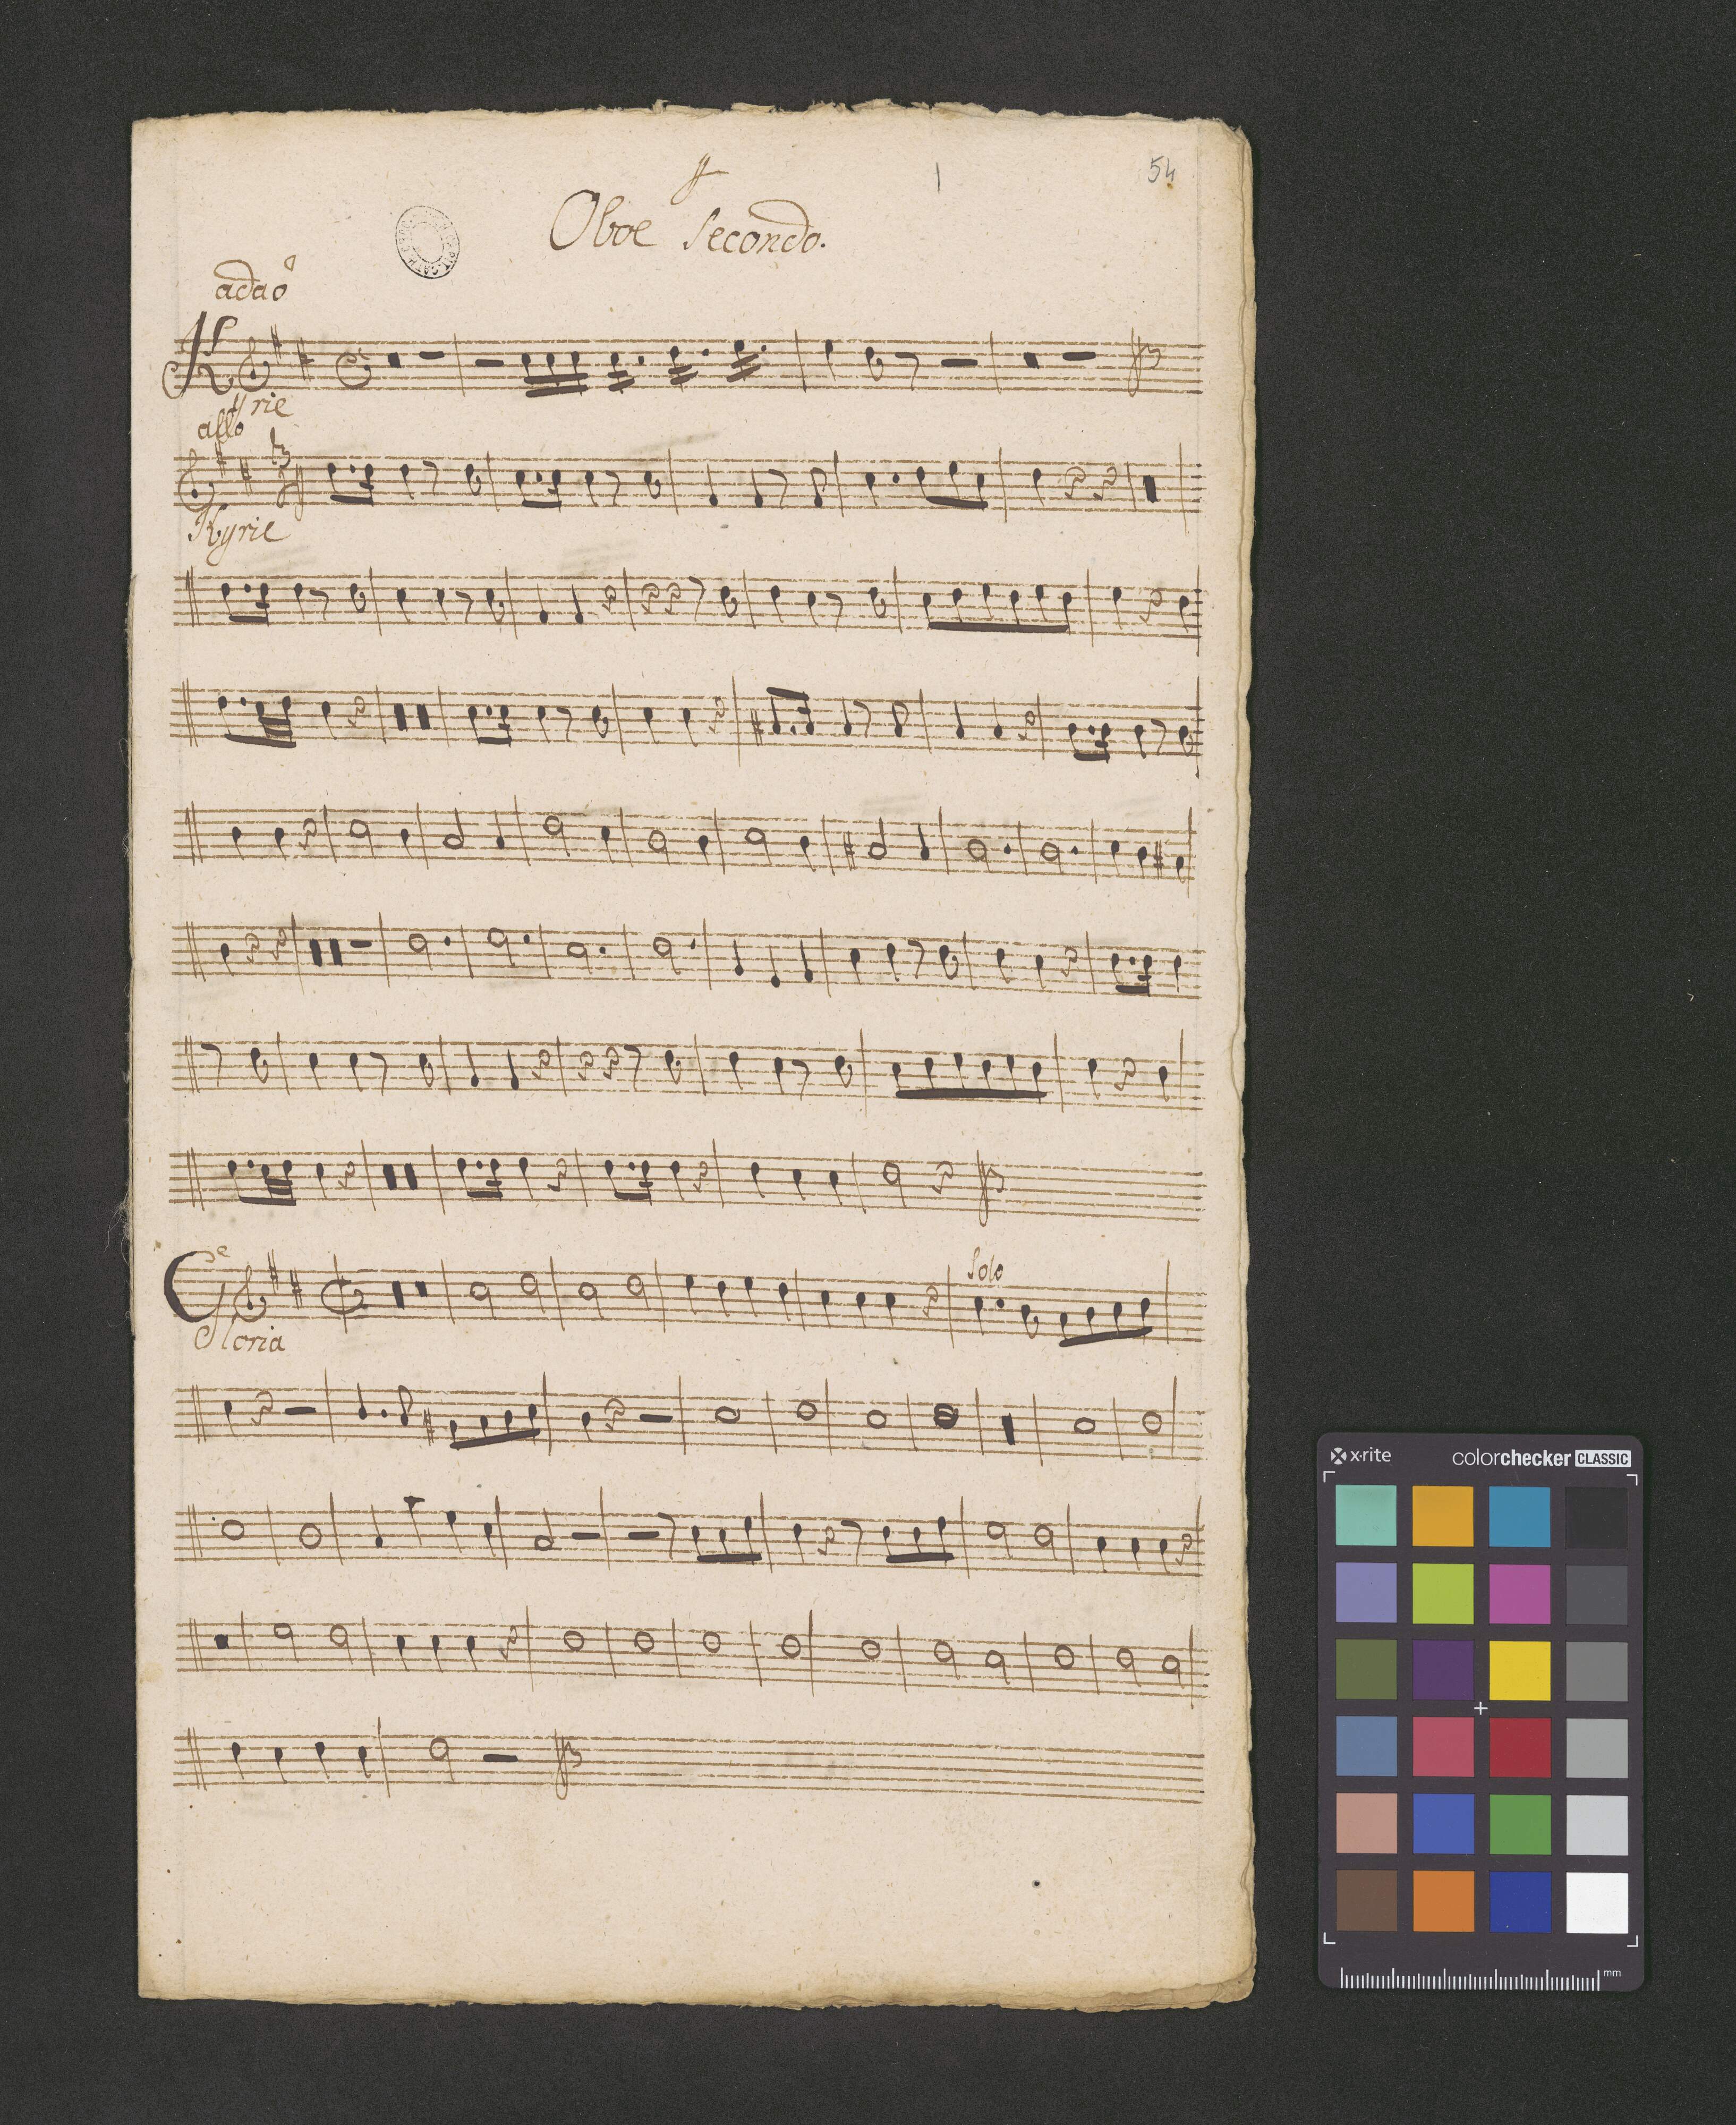 54
Oboe Secondo.
adao
Kyrie
allo
Kyrie
Gloria
Solo
x-rite colorchecker CLASSIC
mm